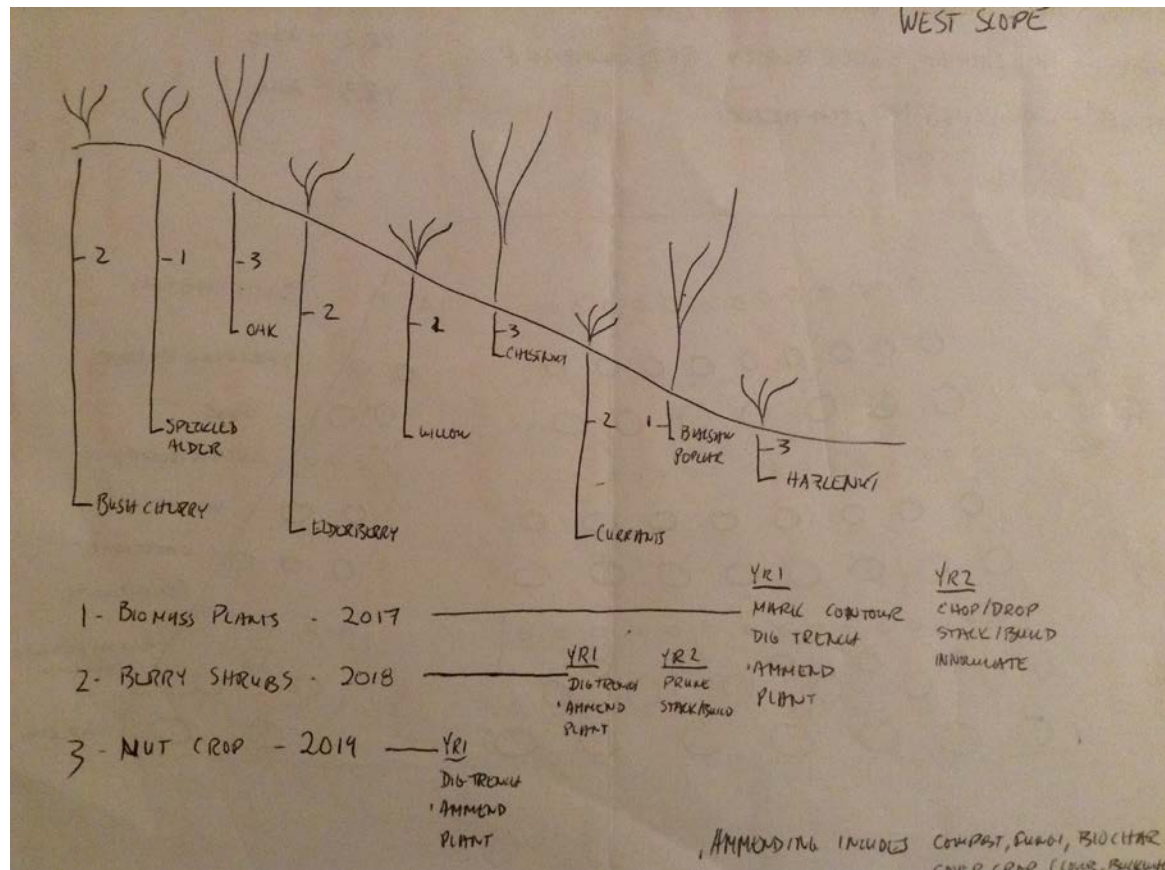 WEST SLOPE
2
1
3
OAK
2
3
CHESTNUT
SPECKLED
ALDER
WILLOW
2
1
BALSAM
POPLAR
3
HAZLENUT
BUSH CHERRY
ELDERBERRY
CURRANTS
1 - BIOMASS PLANTS - 2017
YR1
MARK CONTOUR
DIG TRENCH
'AMMEND
PLANT
YR2
CHOP/DROP
STACK/BUILD
INNOCULATE
2 - BERRY SHRUBS - 2018
YR1
DIG TRENCH
'AMMEND
PLANT
YR2
PRUNE
STACK/BUILD
3 - NUT CROP - 2019
YR1
DIG TRENCH
'AMMEND
PLANT
'AMMENDING INCLUDES COMPOST, FUNGI, BIOCHAR
COVER CROP